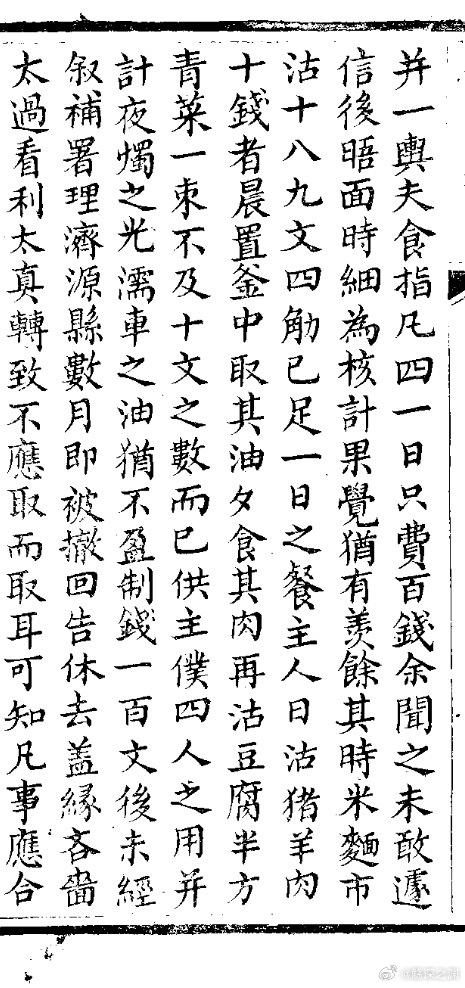 并一輿夫食指凡四一日只費百錢余聞之未敢遽
信後晤面時細為核計果覺猶有羡餘其時米麵市
沽十八九文四觔已足一日之餐主人日沽猪羊肉
十錢者晨置釜中取其油夕食其肉再沽豆腐半方
青菜一束不及十文之數而已供主僕四人之用并
計夜燭之光濡車之油猶不盈制錢一百文後未經
叙補署理濟源縣數月即被撤回告休去盖緣吝嗇
太過看利太真轉致不應取而取耳可知凡事應合